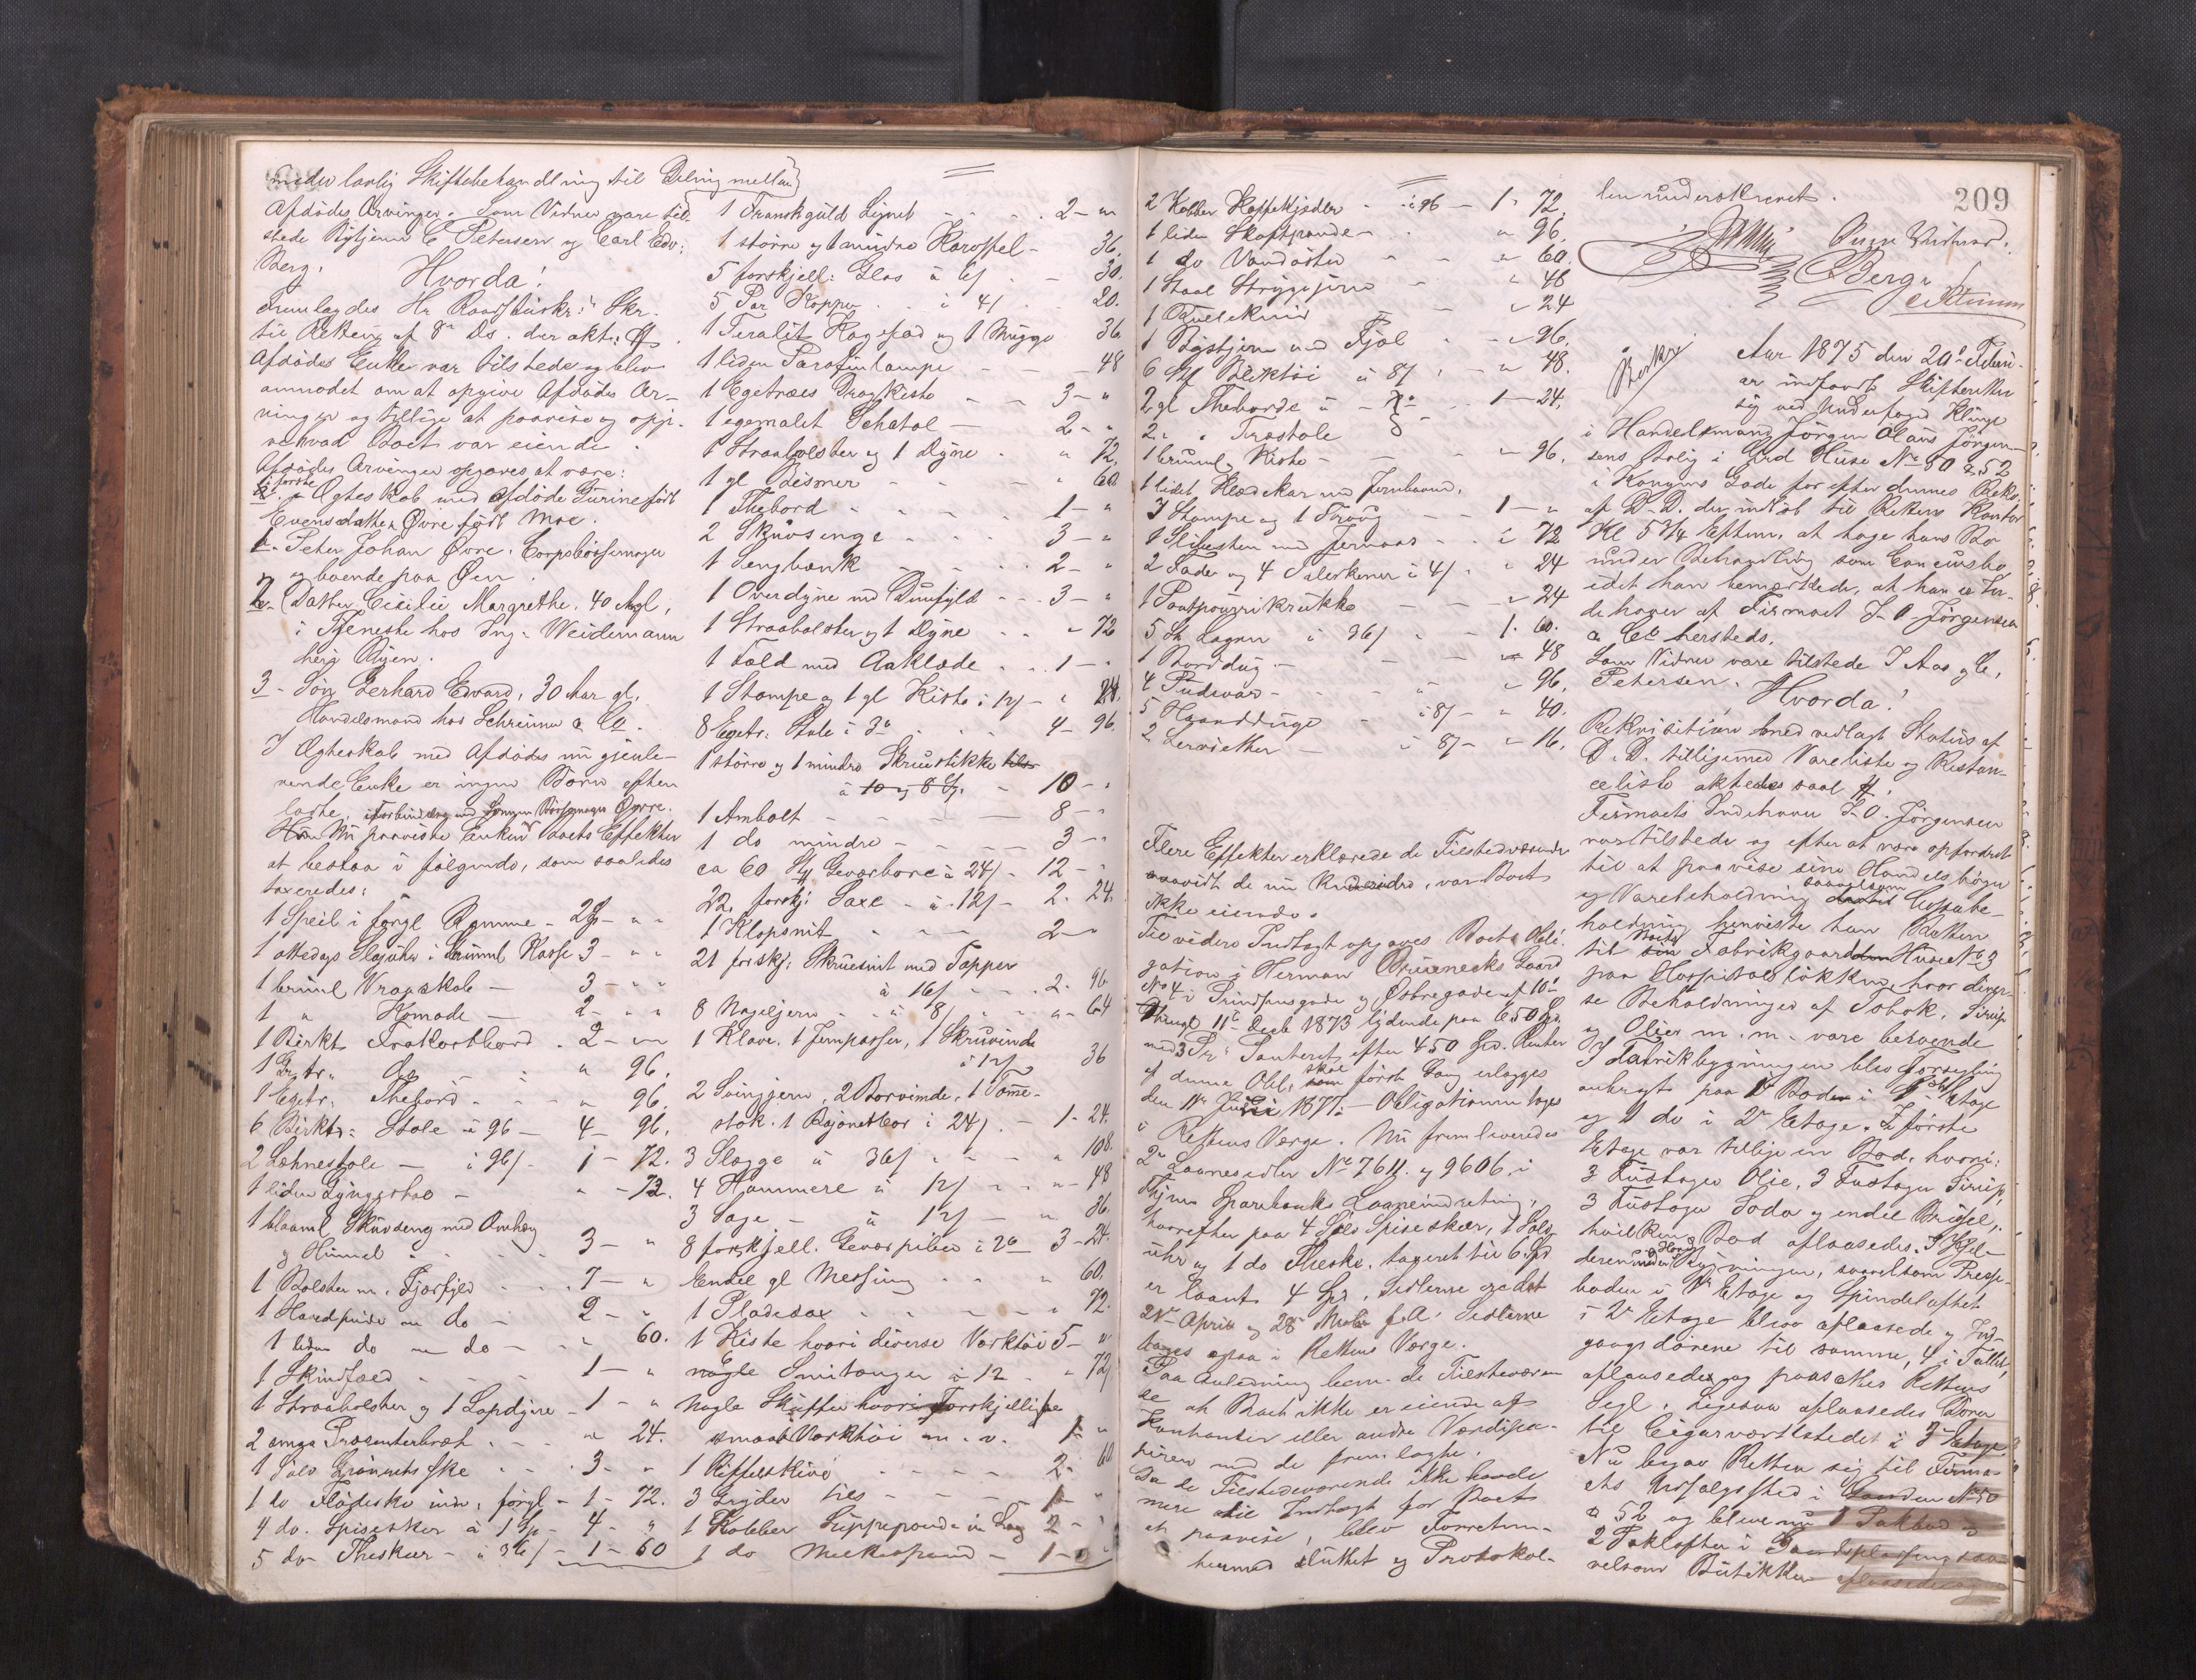 under lovlig Skiftebehandling til Deling mellem
Afdødes Arvinger. Som Vidner vare til-
stede Bytjener C Petersen og Carl Edv:
Berg.
Hvorda!
Fremlagdes Hr Raadstueskr:s Skr.
til Retten af 8de Ds. der akt:
Afdødes Enke var tilstede og blev
anmodet om at opgive Afdødes Ar-
vinger og tillige at paavise og opgi-
ve hvad Boet var eiende.
Afdødes Arvinger opgaves at være:
i første
a. Ægteskab med afdøde Gurine født
Evensdatter Øvre født Moe.
1. Peter Johan Øvre. Corpsbøssemager
og boende paa Øen.
2. Datter Cicilie Margrethe. 40 Aargl,
i Tjeneste hos Ing: Weidemann
her i Byen.
3 - Søn Gerhard Edvard, 30 Aar gl.
Handelsmand hos Schreiner & Co.
I Ægteskab med Afdødes nu gjenle-
vende Enke er ingen Børn efter-
ladte. i Forbindelse med Sønnen Bøssemager Øvre.
Nu paaviste Enken Boets Effekter
at bestaa i følgende, som saaledes
taxeredes:
1 Speil i forgl Ramme - 2 - " "
1 ottedags Slaguhr i brunml Kasse 3 - " "
1 brunml Vragskab - 3 - " "
1 " Komode - 2 - " "
1 Birkt. Frokostbord . 2 - " "
1 Egtr. Do - - " 96.
1 Egetr. Thebord - - " 96.
6 Birktr: Stole a 96 - 4 - 96.
2 Lehnestole - à 96/ - 1 - 72.
1 liden Gyngestol - " - 72.
1 blaaml Skuvseng med Omhæng
og Himmel " 3 - "
1 Bolster m. Fjærfyld - 7 - "
1 Hovedpude m do - 2 - "
1 liden do m do - " 60.
1 Skindfæld - 1 - "
1 Straabolster og 1 Lapdyne - 1 - "
2 smaa Præsenterbræt . - " 24.
1 Sølv Grønnetske - 3 - "
1 do Flødeske indv: forgl - 1 - 72.
4 do. Spiseskeer à 1 Sp - 4 - "
5 do Theskeer - à 36/ - 1 - 60
1 Franskguld Signet - 2 - "
1 større og 1 mindre Karaffel - 36.
5 forskjell: Glas à 6/ - 30.
5 Par Kopper . à 4/ . 20.
1 Feralit Kagefad og 1 Mugge 36
1 liden Parafinlampe - - 48
1 Egetræes Dragkiste - - 3 - "
1 egemalet Schatol - 2 - "
1 Straabolster og 1 Dyne . " 72.
1 gl Bismer - - - " 60
1 Thebord - - - 1 - "
2 Skuvsenge - - - 3 - "
1 Sengbænk - - - 2 - "
1 Overdyne med Duunfyld - - 3 - "
1 Straabolster og 1 Dyne - - " 72
1 Fæld med Aaklæde - - 1 - "
1 Stampe og 1 gl Kiste à 12/ - " 24.
8 Egetr: Stole à 3 - 4 - 96.
1 større og 1 mindre Skruestikke
à 10 og 8 Sp. - 10 - "
1 Ambolt - - - 8 - "
1 do mindre - - - 3 - "
ca 60 St Geværbore à 24/ - 12 - "
22. forskj: Saxe - à 12/ - 2. 24.
1 Klopsnit - - - 2 - "
21 forskj: Skruesnit med Tapper
à 16/ - - 2. 96
8 Nageljern - - à 8/ - - " - 64
1 Klave. 1 Jernpasser, 1 Skruvinde
à 12/ 36
2 Svingjern, 2 Borvinde, 1 Tomme-
stok. 1 Bajonetbor à 24/. - 1 - 24.
3 Slægge à 36/ - - " 108.
4 Hammere à 12/ - - " - 48
3 Sage - à 12/ - " 36.
8 forskjell. Geværpiber à 2 - 3 - 24.
Endel gl Messing - - " 60.
1 Pladesax - - - " 72.
1 Kiste hvori diverse Værktøi 5 - "
nogle Smitanger à 12 - " 72
Nogle Skuffer hvori Forskjellige
smaat Værktøi m. v. 1 - "
1 Riffelskive - - - 2 - 60
3 Gryder - - - 1 - "
1 Kobber Suppepande m Laag 2 - "
1 do Melkespand - 1 - "
209
2 Kobber Kaffekjedler - à 96 - 1 - 72.
1 liden Skaftpande - . " 96.
1 do Vandøster - - " 60.
1 Staal Strygejern - - " 48
1 Buelekniv - - " 24
1 Bøstjern med Fjøl - - " 96.
6 St Bliktøi à 8/ - - " 48.
2 gl Theborde à - - 1 - 24.
2 " " Træstole
1 brunml Kiste - - - " 96.
1 lidet Klædskar m Jernbaand,
3 Stampe og 1 Traug - - 1 - "
1 Slibesten med Jernaas - - " 72
2 Fade og 4 Talerkener à 4/ - " 24
1 Potpourrikrukke - - " 24
5 St Lagen à 36/ - - 1. 60.
1 Borddug - - - " 48
4 Pudevar - - " - " 96.
5 Haandduge - - à 8/ - " 40.
2 Servietter - à 8/ - " 16.
Flere Effekter erklærede de Tilstedeværende
saavidt de nu kunde vide, var Boet
ikke eiende.
Til videre Indtægt opgaves Boets Obli-
gation i Herman Gaard
No 4 i Prindsensgade og Østregade af 10de
Thingl 11te Decb 1873 lydende paa 650 Spd.
med 3 Pr: Panteret efter 450 Spd. Renter
af denne Obl. skal første Gang erlægges
den 11te Juni 1877. Obligationen tages
i Rettens Værge. Nu fremleveredes
2de Laanesedler No 7611. og 9606. i
Thjems Sparebanks Laaneindretning,
hvorefter paa 4 Sølv Spiseskeer, 1 Sølv
uhr og 1 do Theske. taxeret til 6 Spd
er laant 4 Spd. Sedlerne ere dat
24de April og 28de f.A. Sedlerne
tages ogsaa i Rettens Værge.
Paa Anledning bem. de Tilstedeværen-
de at Boet ikke er eiende af
Kontanter eller andre Værdipa-
pirer end de fremlagte.
Da de Tilstedeværende ikke havde
mere til Indtægt for Boet
at paavise, blev Forretnin-
hermed sluttet og Protokol-
len underskrevet.
Berg.
C Petersen
Aar 1875 den 20de Febru-
ar indfandt Skifteretten
sig ved Underfoged Klinge
i Handelsmand Jørgen Olaus Jørgen-
sens Bolig i Grd Huse No 50 & 52
i Kongens Gade for efter dennes Rekv.
af D.D. der indløb til Rettens Kontor
Kl 5 3/4 Efterm. at tage hans Bo
under Behandling som Concursbo
idet han bemærkede, at han er In-
dehaver af Firmaet J. O. Jørgensen
& Co hersteds.
Som Vidner vare tilstede J Aas og C.
Petersen.
Hvorda!
Rekvisitionen med vedlagt Status af
D.D. tilligemed Vareliste og Restan-
celiste aktedes saal.
Firmaets Indehaver J. O. Jørgensen
var tilstede og efter at være opfordret
til at paavise sine Handelsbøger
og Varebeholdning saavelsom Cassabe-
holdning henviste han Retten
til Boets Fabrikgaard Huse No 3
paa Hospitalsløkken, hvor diver-
se Beholdninger af Tobak, Sirup
og Olier m. m. vare beroende
I Fabrikbygningen blev Forsegling
anbragt paa 1 Boden i 1ste Etage
og 1 do i 2de Etage. I første
Etage var tillige en Bod, hvori:
3 Fustager Olie, 3 Fustager Sirup,
3 Fustager Soda og endel Brisel,
hvilken Bod aflaasedes. I Kjel-
deren under Bygningen, saavelsom Presse-
boden i 1ste Etage og Spindeloftet
i 2de Etage blev aflaasede og Ind-
gangsdørene til samme, 4 i Tallet,
aflaasedes og paasattes Rettens
Segl. Ligesaa aflaasedes Døren
til Cigarværkstedet i 3de Etage
Nu begav Retten sig til Firma-
ets Udsalgssted i Gaarden No 50
& 52 og blev nu 1 Pakbod
2 Paklofter i Gaardspladsen saa-
velsom Butikken aflaasede og